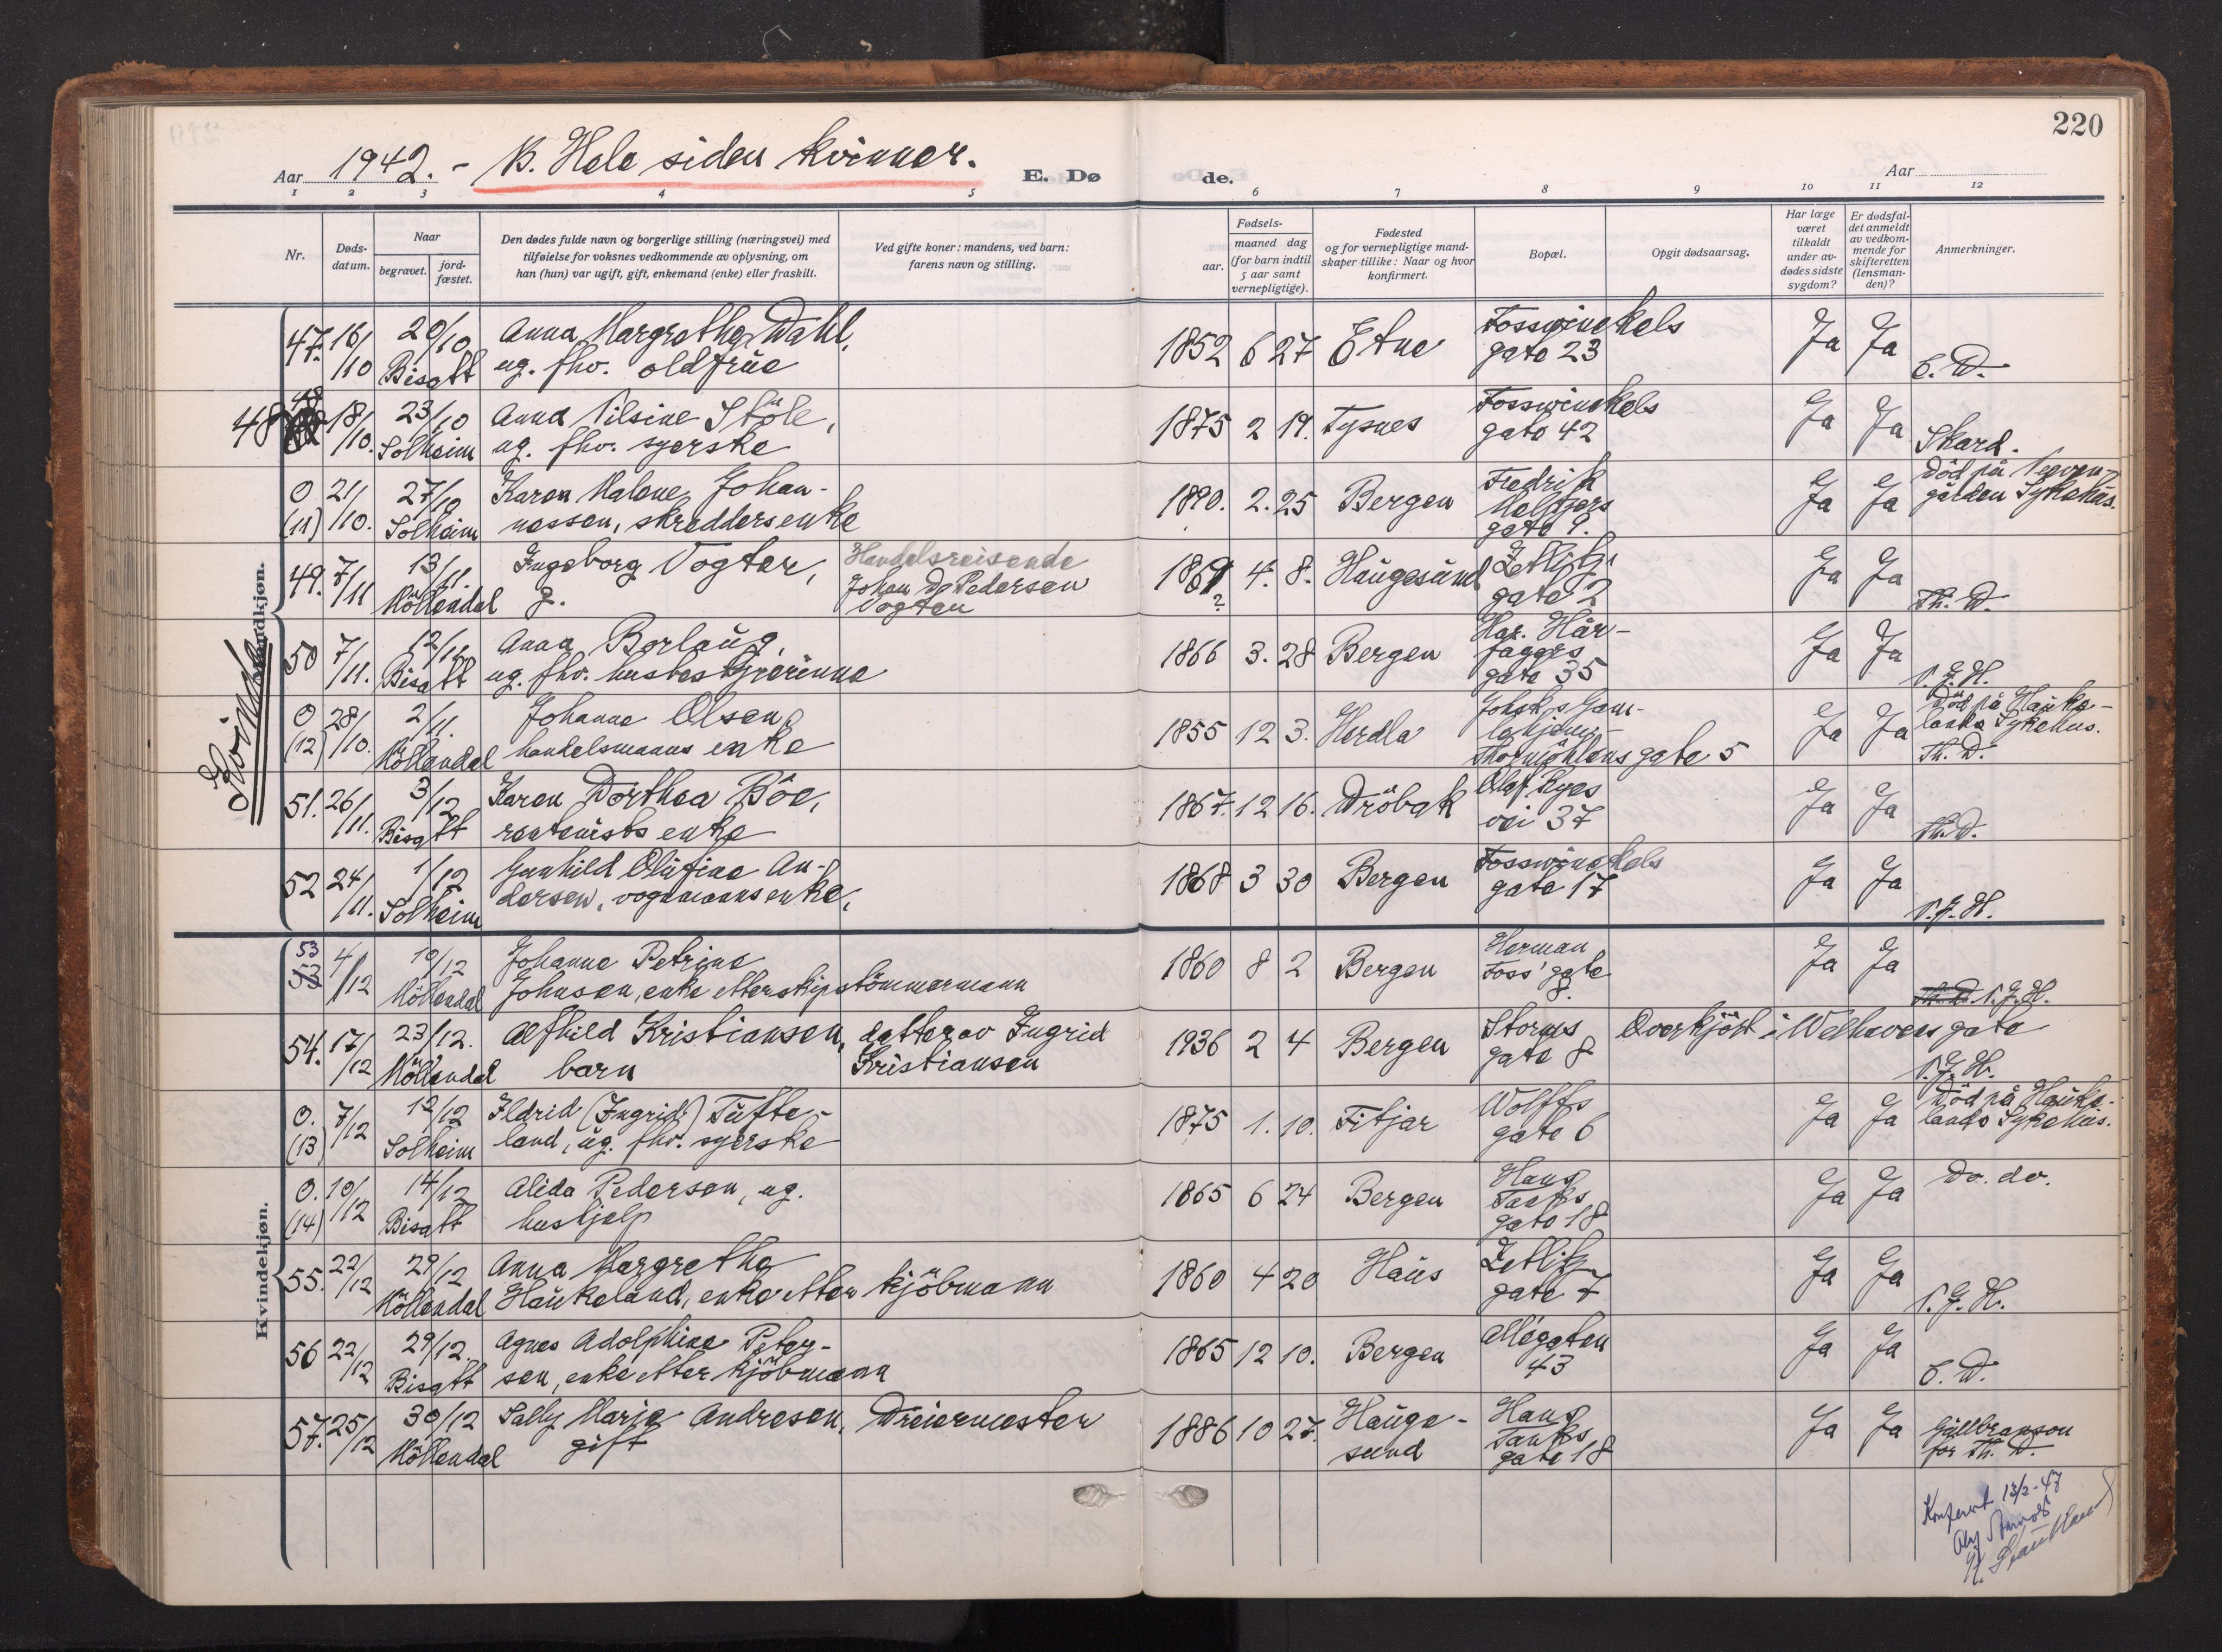 220
Aar 1942. - B. Hele siden kvinner.
E. Dø
de.
Aar
1 2 3 4 5 6 7 8 9 10 11 12
Nr.
Døds-
datum.
Naar
begravet.
jord-
fæstet.
Den dødes fulde navn og borgerlige stilling (næringsvei) med
tilføielse for voksnes vedkommende av oplysning, om
han (hun) var ugift, gift, enkemand (enke) eller fraskilt.
Ved gifte koner: mandens, ved barn:
farens navn og stilling.
Fødsels-
aar.
maaned dag
(for barn indtil
5 aar samt
vernepligtige).
Fødested
og for vernepligtige mand-
skaper tillike: Naar og hvor
konfirmert.
Bopæl.
Opgit dødsaarsag.
Har læge
været
tilkaldt
under av-
dødes sidste
sygdom?
Er dødsfal-
det anmeldt
av vedkom-
mende for
skifteretten
(lensman-
den)?
Anmerkninger.
Kvinde
Kvindekjøn.
47. 16/10 20/10 Anna Margrethe Wahl, 1852 6 27 Etne Fosswinckels Ja Ja
Bisatt ug. fhv. oldfrue gate 23 C. D.
48 48 18/10. 23/10 Anna Nilsine Stöle, 1875 2 19. Tysnes Fosswinckels Ja Ja
Solheim ug. fhv. syerske gate 42 Skard.
0 21/10. 27/10 Karen Malene Johan- 1890. 2. 25 Bergen Fredrik Ja Ja Död på Neven-
(11) Solheim nessen, skreddersenke Meltzers gården Sykehus.
gate 9.
49. 7/11 13/11. Ingeborg Vogter, Handelsreisende 1869 4. 8. Haugesund Zetlitz Ja Ja
Möllendal g. Johan D. Pedersen ? gate 2 Th. D.
Vogter
50 7/11. 12/11 Anna Borlaug, 1866 3. 28 Bergen Har. Hår- Ja Ja
Bisatt ug. fhv. husbestyrerinne fagers
gate 35 N. J. H.
0 28/10. 2/11. Johanne Olsen, 1855 12 3. Herdla Johsks Gam- Ja Ja Död på Hauke-
(12) Möllendal handelsmanns enke lehjem, lands Sykehus.
Thormöhlens gate 5 Th. D.
51. 26/11. 3/12 Karen Dorthea Böe, 1867. 12 16. Dröbak Olaf Ryes Ja Ja
Bisatt rentenists enke vei 37 Th. D.
52 24/11. 1/12 Gunhild Olufine An- 1868 3 30 Bergen Fosswinckels Ja Ja
Solheim dersen, vognmanns enke, gate 17 N. J. H.
53
53 4/12 10/12 Johanne Petrine 1860 8 2 Bergen Herman Ja Ja
Möllendal Johnsen, enke etter skipstömmermann Foss' gate
8. Th. D. N. J. H.
54. 17/12 23/12. Alfhild Kristiansen, datter av Ingrid 1936 2 4 Bergen Storms Overkjört i Welhavens gate
Möllendal barn Kristiansen gate 8 N. J. H.
0. 7/12 12/12 Ildrid (Ingrid) Tufte- 1875 1. 10. Fitjar Wolffs Ja Ja Död på Hauke-
(13) Solheim land, ug. fhv. syerske gate 6 lands Sykehus.
0. 10/12 14/12 Alida Pedersen, ug. 1865 6 24 Bergen Hans Ja Ja Do. do.
(14) Bisatt hushjelp Tanks
gate 18
55. 22/12 29/12 Anna Margrethe 1860 4 20 Haus Zetlitz Ja Ja
Möllendal Haukeland, enke etter kjöbmann gate 7 N. J. H.
56 22/12 29/12. Agnes Adolphine Peter- 1865 12 10. Bergen Allégaten Ja Ja
Bisatt sen, enke etter kjöbmann 43 C. D.
57. 25/12 30/12 Sally Marie Andresen, Dreiermester 1886 10 27. Hauge- Hans Ja Ja Gullbranson
Möllendal gift sund Tanks for Th. D.
gate 18
Konferert 13/2-47